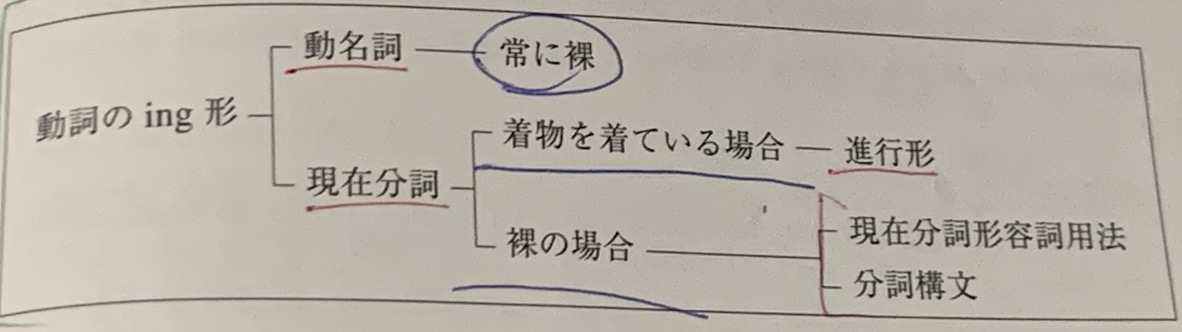 動名詞 常に裸
動詞の ing 形
着物を着ている場合 進行形
現在分詞
裸の場合 現在分詞形容詞用法
分詞構文